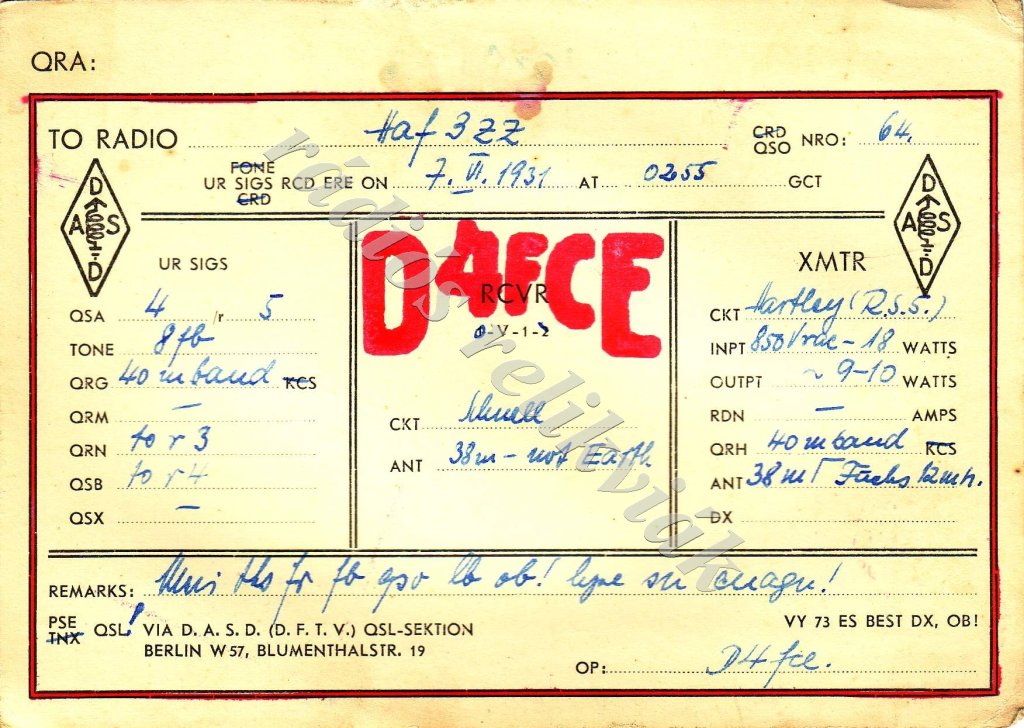 QRA:
TO RADIO Haf 3ZZ CRD QSO NRO: 64.
FONE
UR SIGS RCD ERE ON 7. VI. 1931 AT 0255 GCT
CRD
D A S D
D A S D
UR SIGS
QSA 4 /r 5
TONE 8 fb
QRG 40 mband KCS
QRM —
QRN to r 3
QSB to r 4
QSX —
D4FCE
RCVR
0-V-1-2
CKT Schnell
ANT 38m - not Earth.
XMTR
CKT Hartley (R.S.S.)
INPT 850V rac - 18 WATTS
OUTPT ~ 9-10 WATTS
RDN — AMPS
QRH 40 mband KCS
ANT 38m Fuchs 12mh.
DX
REMARKS: tks fr fb qso lb ob! hpe su cuagn!
PSE
TNX QSL! VIA D. A. S. D. (D. F. T. V.) QSL-SEKTION
BERLIN W 57, BLUMENTHALSTR. 19
VY 73 ES BEST DX, OB!
OP: D4fce.
rádiós relikviák